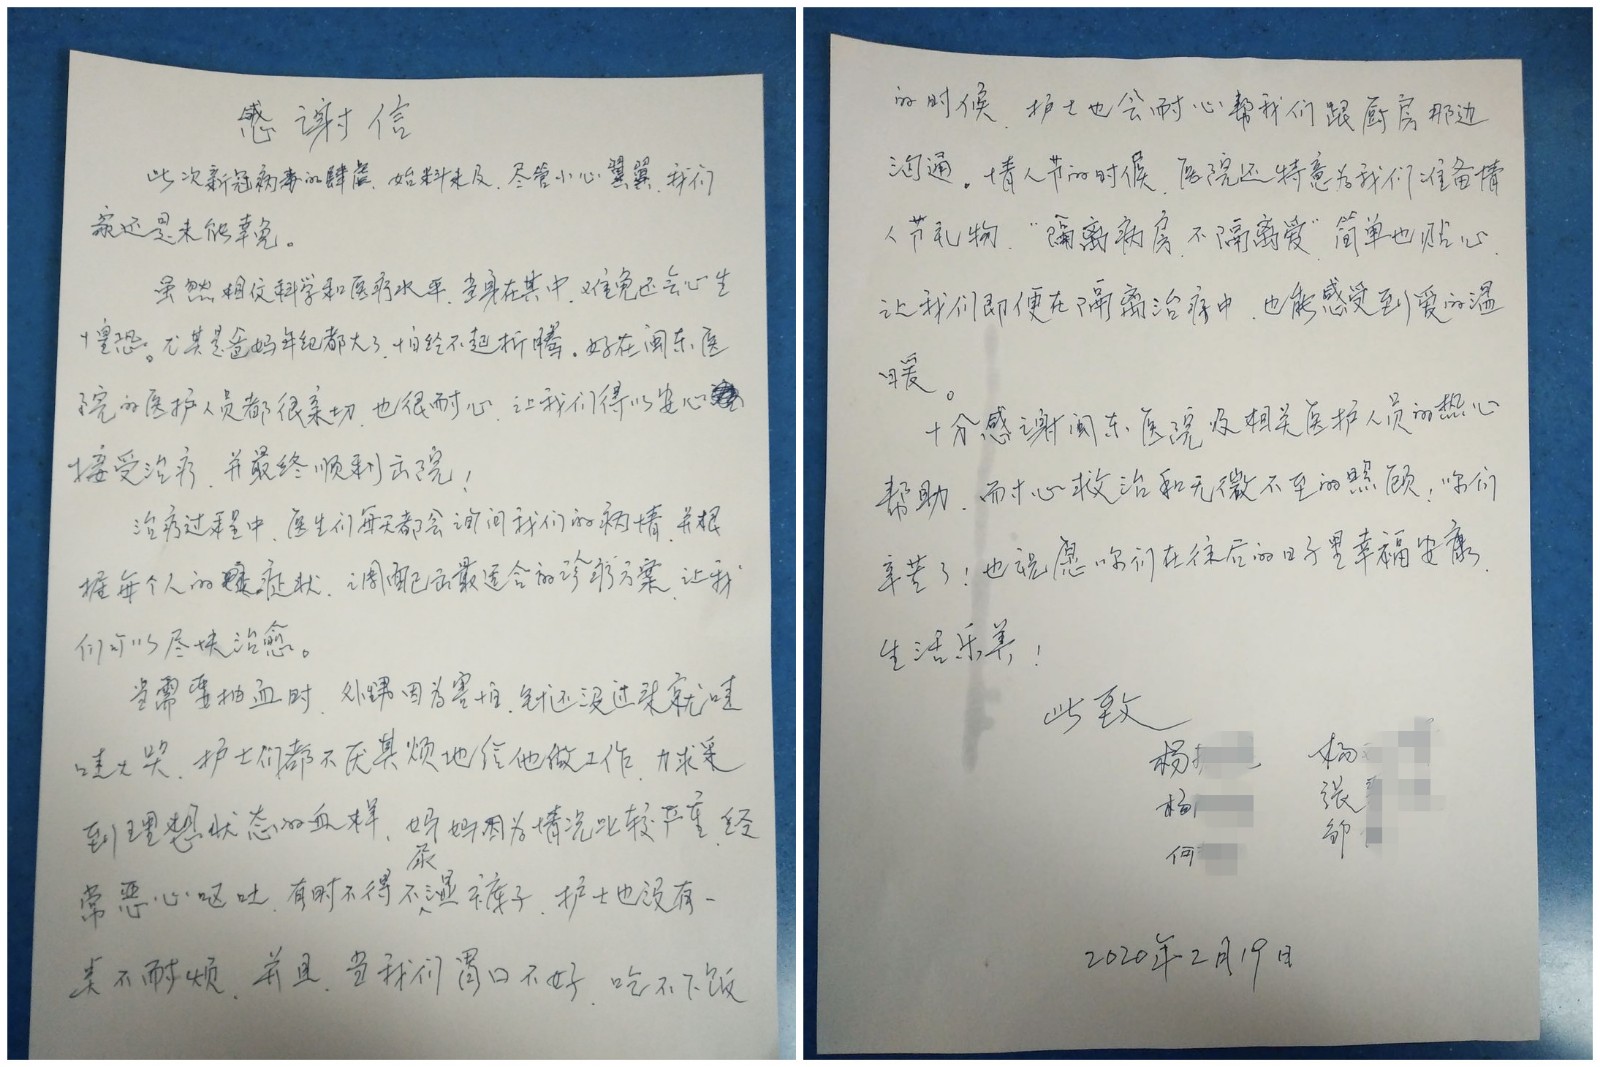 感谢信
此次新冠病毒的肆虐，始料未及，尽管小心翼翼，我们
家还是未能幸免。
虽然相信科学和医疗水平，当身在其中，难免还会心生
惶恐。尤其是爸妈年纪都大了，怕经不起折腾。好在闽东医
院的医护人员都很亲切，也很耐心，让我们得以安心
接受治疗，并最终顺利出院！
治疗过程中，医生们每天都会询问我们的病情，并根
据每个人的症状，调配出最适合的诊疗方案，让我
们可以尽快治愈。
当需要抽血时，外甥因为害怕，针还没过来就哇
哇大哭，护士们都不厌其烦地给他做工作，力求采
到理想状态的血样，妈妈因为情况比较严重，经
常恶心呕吐，有时不得不尿湿裤子，护士也没有一
类不耐烦，并且，当我们胃口不好，吃不下饭
的时候，护士也会耐心帮我们跟厨房那边
沟通。情人节的时候，医院还特意为我们准备情
人节礼物，“隔离病房，不隔离爱”简单也贴心，
让我们即便在隔离治疗中，也能感受到爱的温
暖。
十分感谢闽东医院及相关医护人员的热心
帮助，耐心救治和无微不至的照顾！你们
辛苦了！也祝愿你们在往后的日子里幸福安康，
生活乐美！
此致
杨 杨
杨 张
何 邹
2020年2月19日